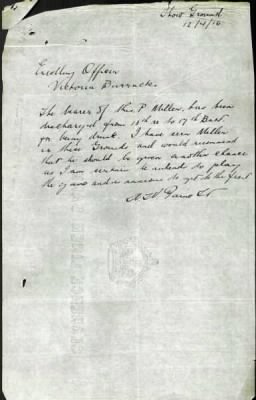 Show Ground
12/4/16
Enrolling Officer
Victoria Barracks.
The bearer of this P. Miller, has been
discharged from 18th re to 17th Batt
for being drunk. I have seen Miller
in these Grounds and would recommend
that he should be given another chance
as I am certain he intends to play
the game and is anxious to get to the front
Lt